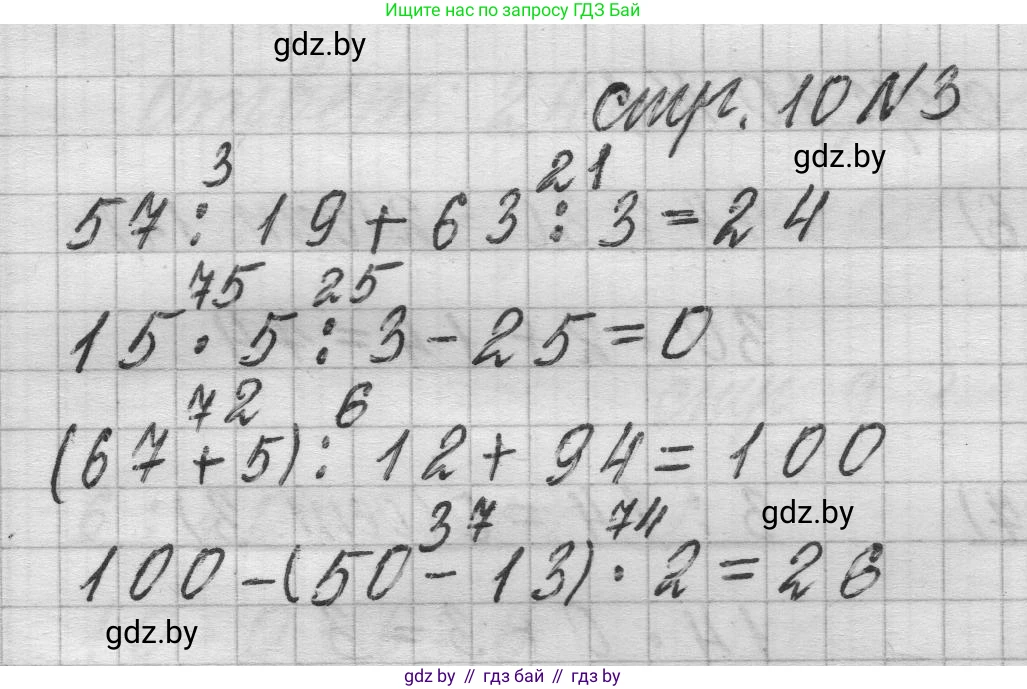 Ищите нас по запросу ГДЗ Бай
gdz.by
стр. 10 N 3
gdz.by
3 21
57 : 19 + 63 : 3 = 24
75 25
15 · 5 : 3 - 25 = 0
72 6
(67 + 5) : 12 + 94 = 100
gdz.by
37 74
100 - (50 - 13) · 2 = 26
gdz.by
gdz.by // гдз бай // gdz.by